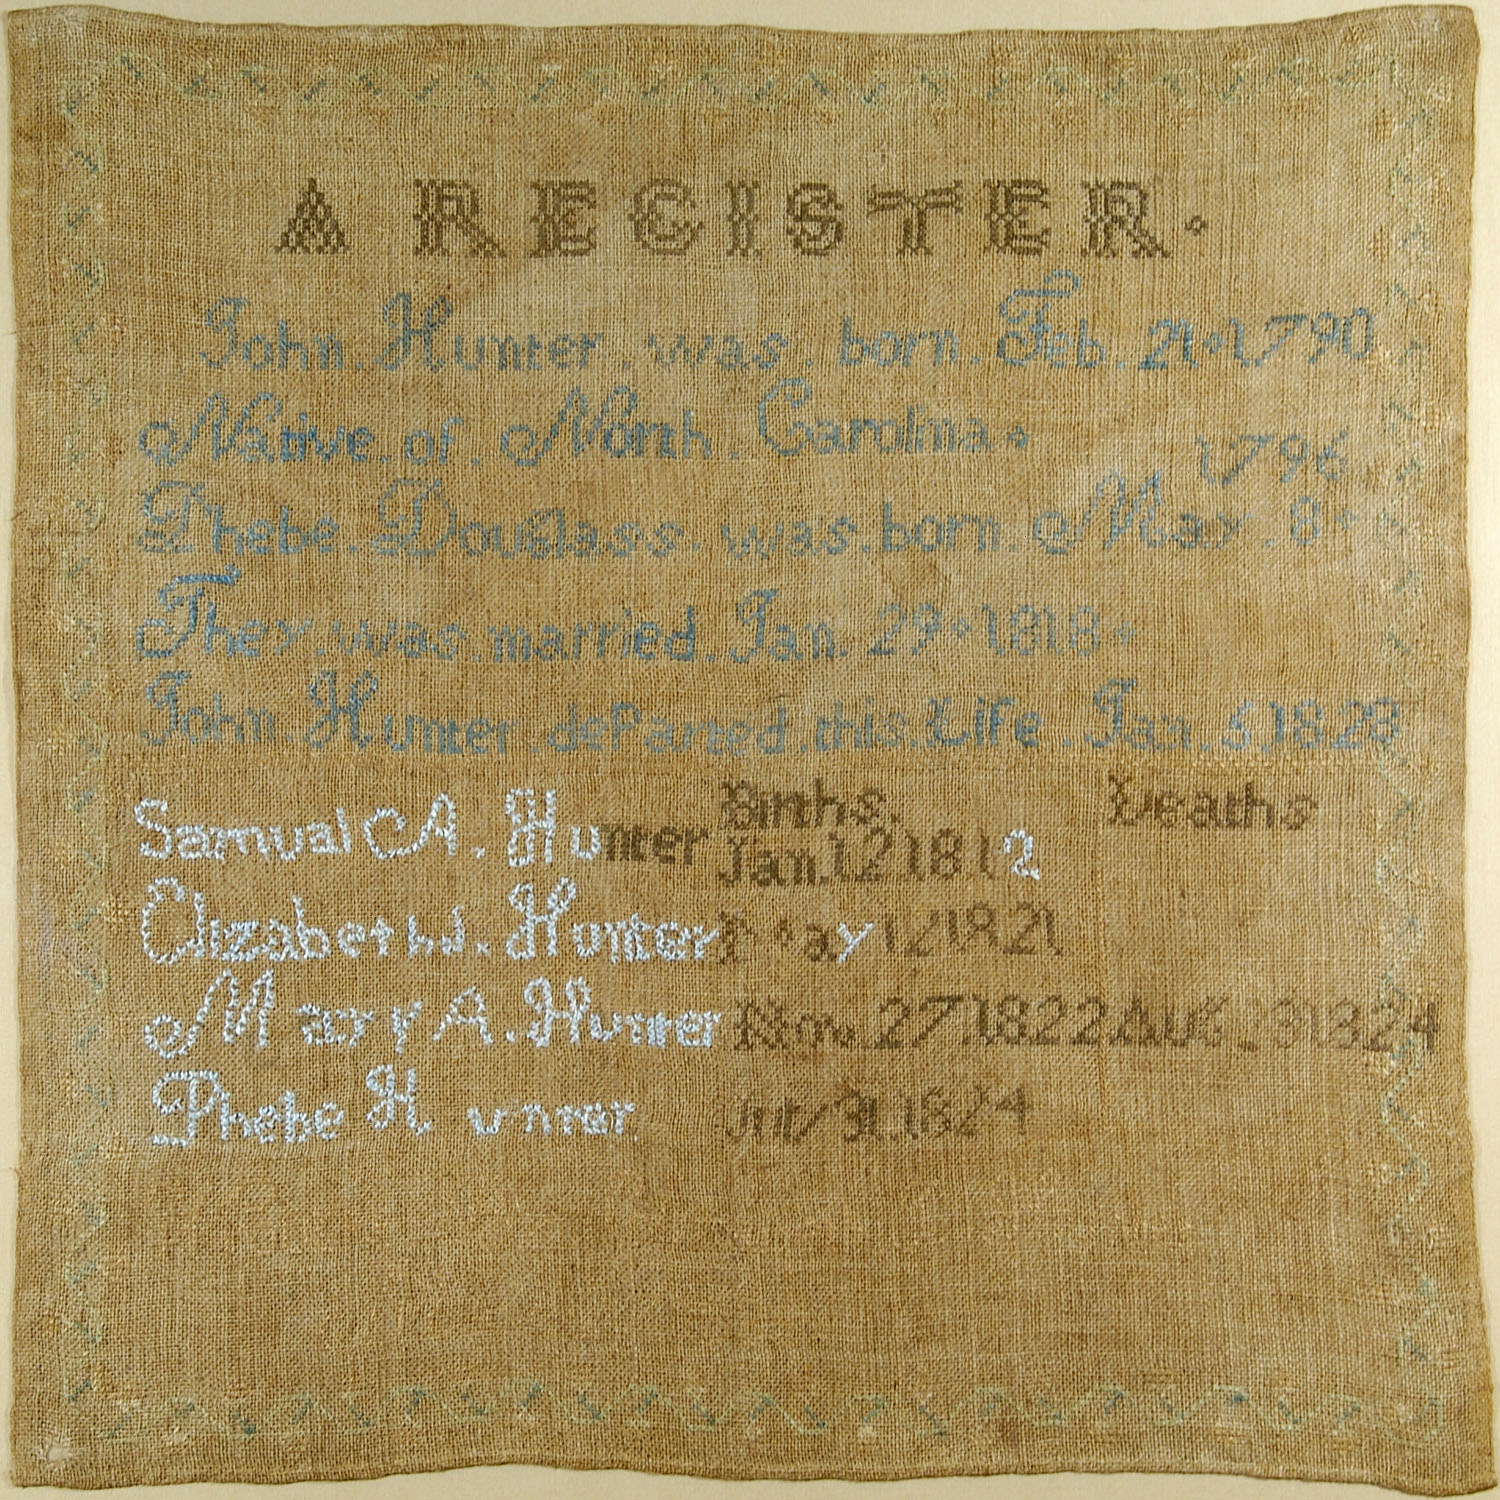 A REGISTER.
John. Hunter. was. born. Feb. 21. 1790
Native. of. North. Carolina. 1796
Phebe. Douglass. was. born. May. 8.
They. was. married. Jan. 29. 1818.
John. Hunter. departed. this. Life. Jan. 5, 1828
Births, Deaths
Samual A. Hunter Jan. 12 1812
Elizabeth J. Hunter May 17 1821
Mary A. Hunter Nov. 27 1822 AUG. 31 1824
Phebe Hunter 31, 1824